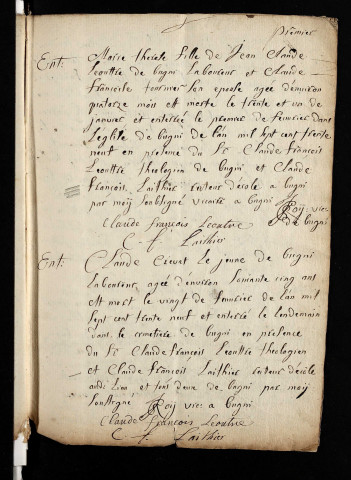 premier
Ent: Marie therese fille de Jean Claude
Leouttre de bugni laboureur et Claude
francoise tournier son epouse agée denviron
quatorze mois est morte le trente et un de
janvier et enterrée le premier de fevrier dans
leglise de bugni de lan mil sept cent trente
neuf en presence du Sr Claude francois
Leouttre theologien de bugni et Claude
francois Laithier recteur décole a bugni
par moy soubsigné vicaire a bugni
Roy vic.
de bugni
Claude francois Leoutre
C. f. Laithier
Ent: Claude le jeune de bugni
laboureur agée d'environ soixante cinq ans
est mort le vingt de janvier de l'an mil
sept cent trente neuf et enterré le lendemain
dans le cemetiere de bugni en presence
du Sr Claude francois Leouttre theologien
et Claude francois Laithier recteur décole
audi lieu et tous deux de bugni par moy
soussigné
Roy vic: a bugni.
Claude francois Leoutre
C. f. Laithier